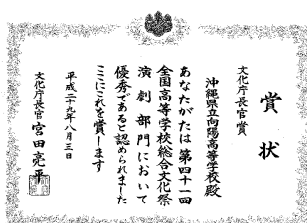 賞状
文化庁長官賞
沖縄県立向陽高等学校殿
あなたがたは第四十一回
全国高等学校総合文化祭
演劇部門において
優秀であると認められました
ここにこれを賞します
平成二十九年八月三日
文化庁長官 宮田亮平